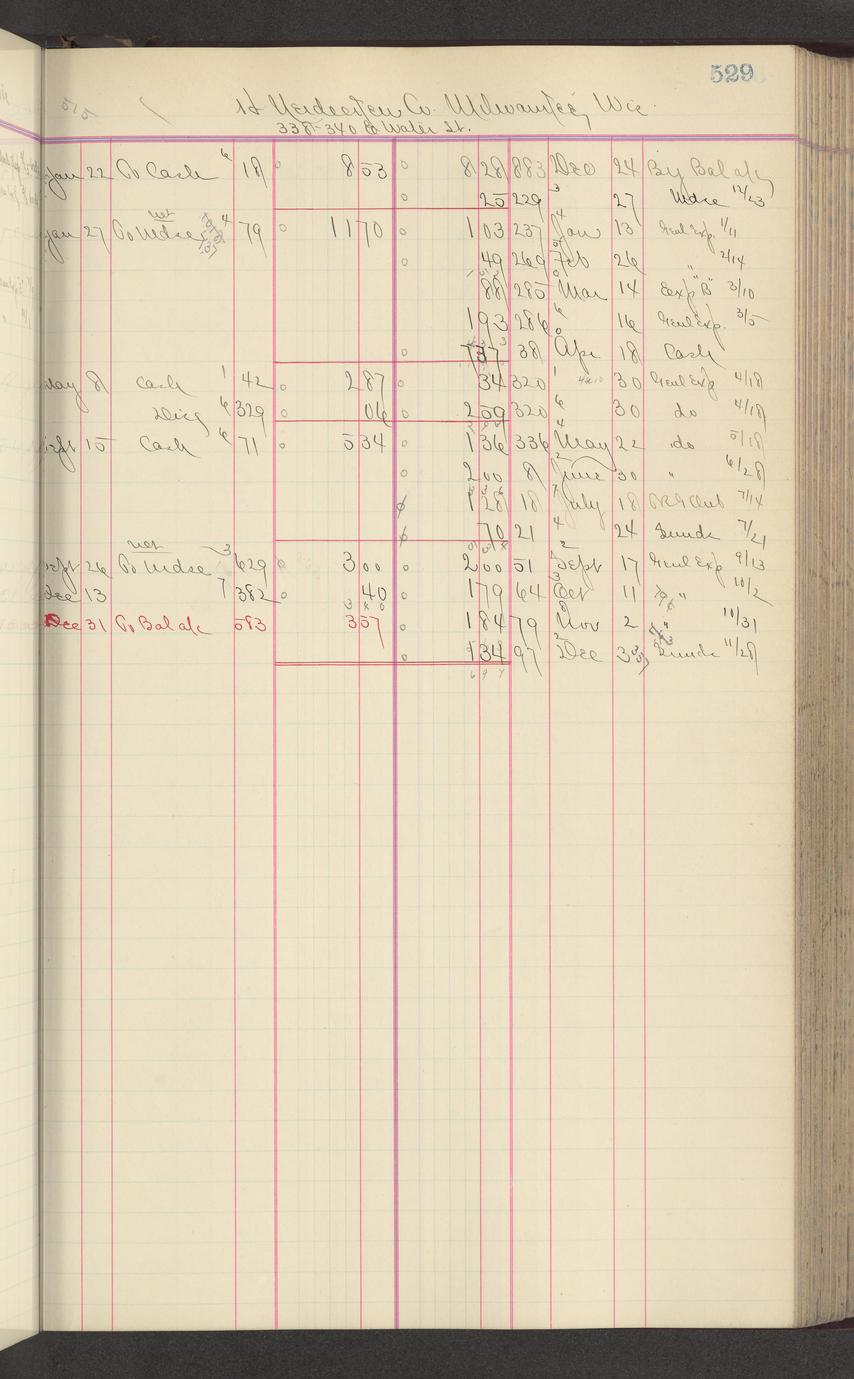 529
Co. Milwaukee, Wis.
338-340 Water St.
Jan 22 To Cash 6 18 8 53 8 28 883 Dec 24 By Bal a/c
25 229 3 27 Mdse 12/23
net
Jan 27 To Mdse 4 79 11 70 1 03 237 4 Jan 13 Genl Exp. 1/11
49 269 Feb 26 " 2/14
88 285 Mar 14 Exp "B" 3/10
1 93 286 6 16 Genl Exp. 3/5
7 37 38 Apr 18 Cash
May 8 Cash 1 42 2 87 34 320 1 30 Genl Exp 4/18
Disc 6 329 06 2 59 320 6 30 do 4/18
Sept 15 Cash 6 71 5 34 1 36 336 4 May 22 do 5/18
2 00 8 June 30 " 6/28
1 28 18 7 July 18 7/14
70 21 4 24 Sunds 7/21
net
Sept 26 To Mdse 3 629 3 00 2 00 51 Sept 17 Genl Exp 9/13
Dec 13 7 382 40 1 79 64 Oct 11 " 10/2
3 60
Dec 31 To Bal a/c 583 3 57 1 84 79 Nov 2 " 10/31
1 34 97 2 Dec Sunds 11/28
6 97